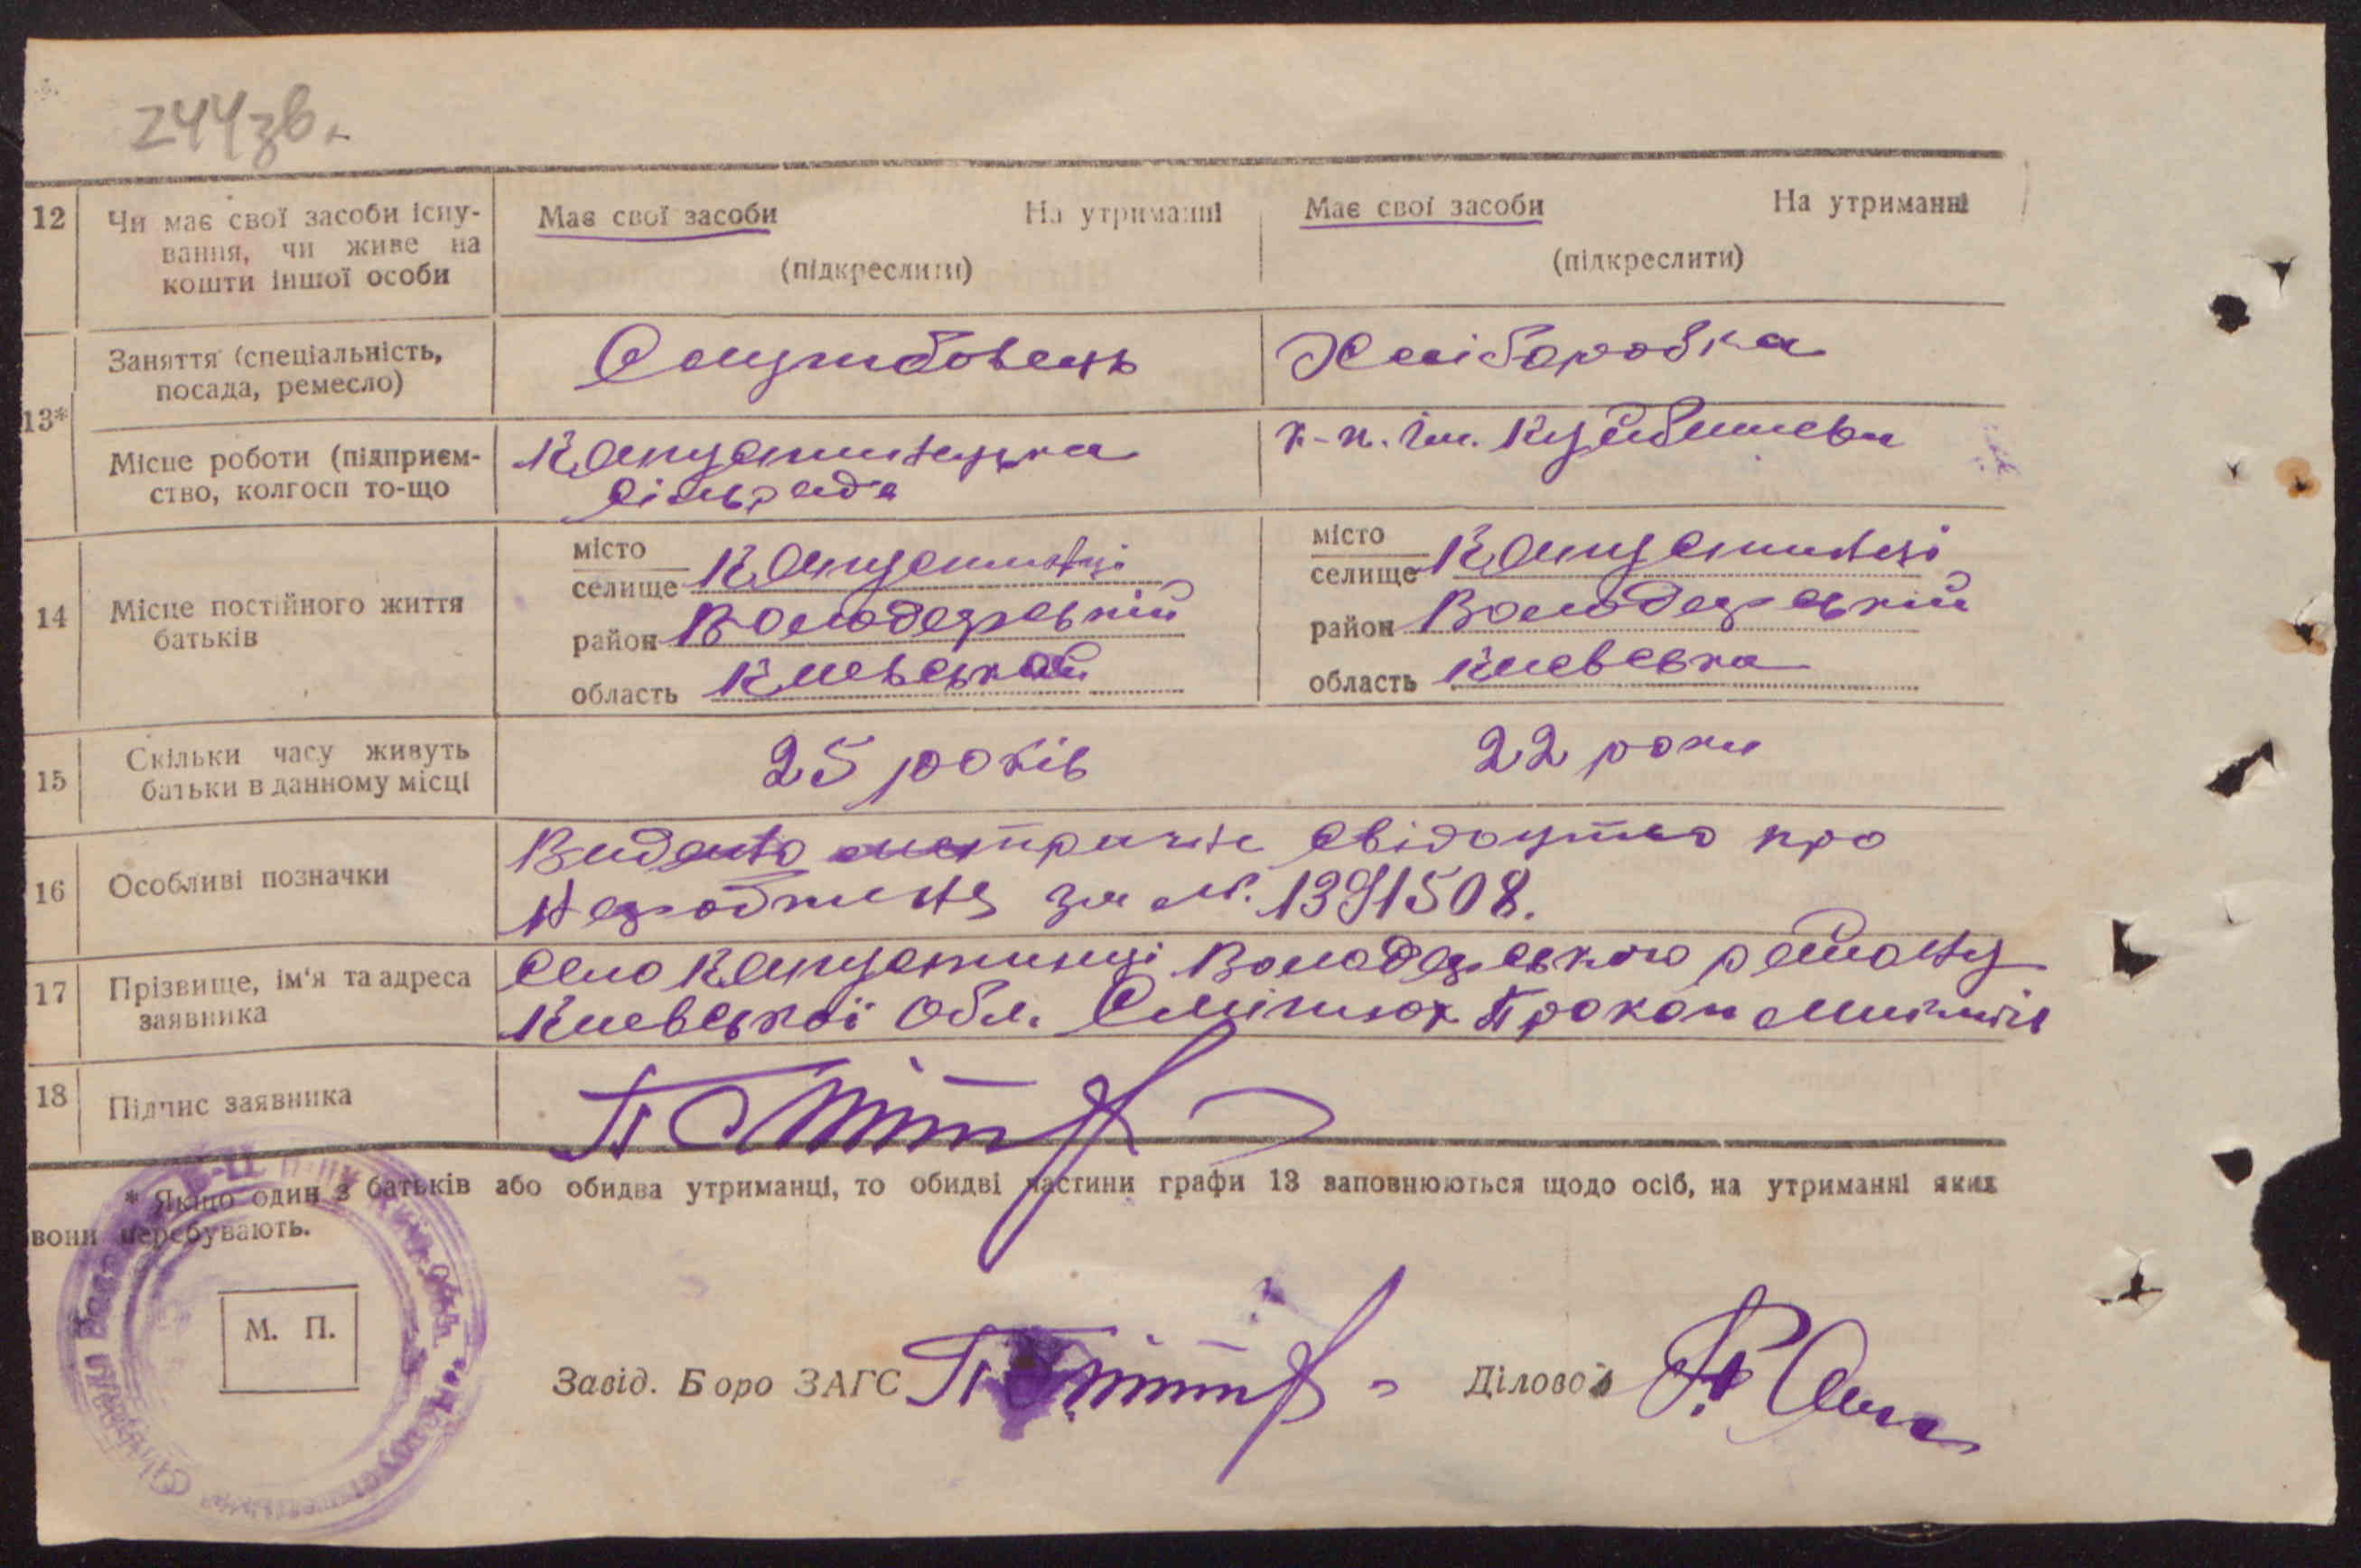 244зв.
12 Чи має свої засоби існу- Має свої засоби На утриманні Має свої засоби На утриманні
вання, чи живе на
кошти іншої особи (підкреслити) (підкреслити)
13* Заняття (спеціальність, Службовець Хліборобка
посада, ремесло)
Місце роботи (підприєм- Капустинецька к-п. ім. Куйбишева
ство, колгосп то-що сільрада
14 Місце постійного життя батьків
місто Капустинці місто Капустинці
селище селище
район Володарський район Володарський
область Киевської область Киевська
15 Скільки часу живуть 25 років 22 роки
батьки в данному місці
16 Особливі позначки Видано метричне свідоцтво про
народження за №. 1391508.
17 Прізвище, ім'я та адреса село Капустинці Володарського району
заявника Киевської Обл. Прокоп
18 Підпис заявника
* Якщо один з батьків або обидва утриманці, то обидві частини графи 13 заповнюються щодо осіб, на утриманні яких
вони перебувають.
М. П.
Завід. Боро ЗАГС Діловод